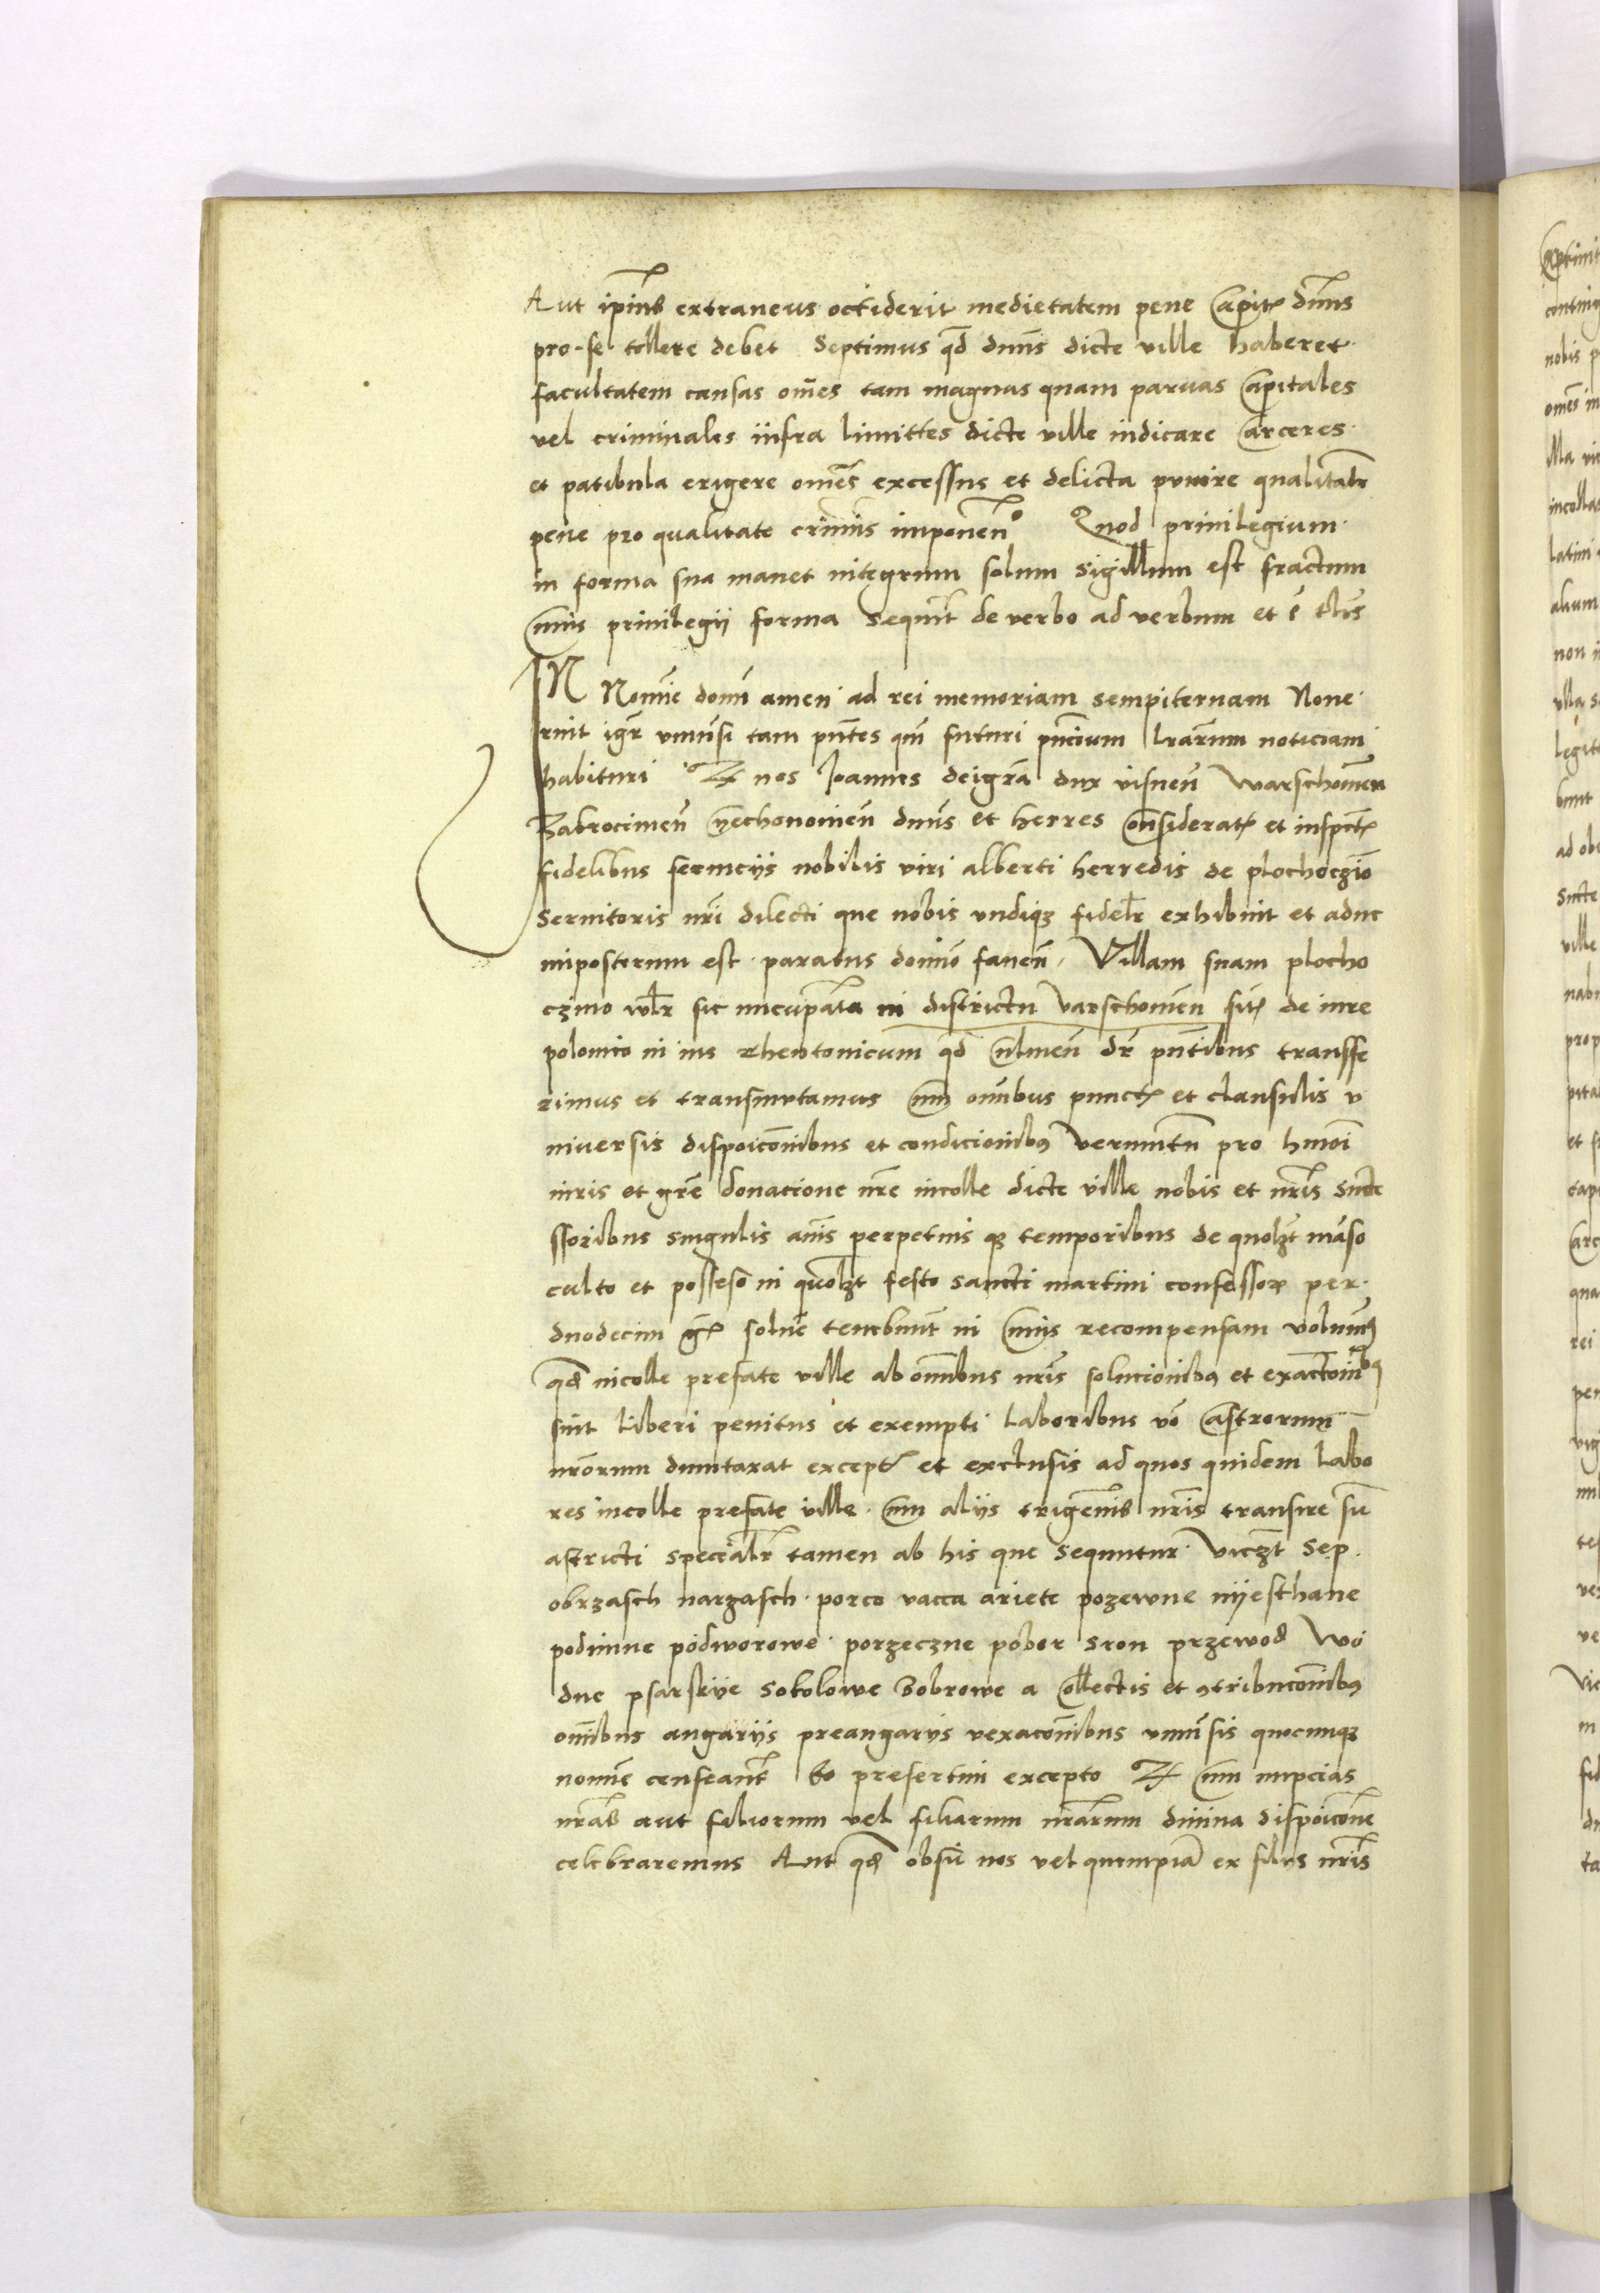 Aut ip̅ius extraneus occiderit medietatem pene capit̅ dn̅us
pro se tollere debet Septimus qd̅ dn̅us dicte ville haberet
facultatem causas om̅es tam magnas quam paruas capitales
vel criminales infra limittes dicte ville iudicare carceres
et patibula erigere om̅es excessus et delicta punire qualitate̅
pene pro qualitate crimi̅s imponen̅ Quod priuilegium
in forma sua manet integrum solum sigillum est fractum
cuius priuilegij forma sequit̅ de verbo ad verbum et e̅ tl̅is
IN Nomi̅e domi̅ amen ad rei memoriam sempiternam Noue
rint igr̅ vniu̅si tam pn̅tes qm̅ futuri pn̅cium l̅rarum noticiam
habituri Q nos Joannes dei gr̅a dux visnen̅ warschouien̅
Zakrocimen̅ cyechonouien̅ dn̅us et herres consideratꝭ et inspectꝭ
fidelibus seruicijs nobilis viri alberti herredis de plochoczino
seruitoris nr̅i dilecti que nobis vndiqꝫ fidelr̅ exhibuit et aduc
inposterum est paratus domi̅o fauen̅ Villam suam plocho
czino wlr̅ sic nuncupata̅ in districtu varschouien̅ sitꝭ de iure
polonico in ius thewtonicum qd̅ culmen̅ dr̅ pn̅tibus transfe
rimus et transmutamus cum om̅ibus punctꝭ et clausulis v
niuersis dispoic̅onibus et condicionibꝰ verumtn̅ pro hmo̅i
iuris et gr̅e donacione nr̅e incolle dicte ville nobis et nr̅is succe
ssoribus singulis an̅is perpetuis qꝫ temporibus de quolꝫt ma̅so
culto et possesso in quolꝫt festo sancti martini confessor̅ per
duodecim gr̅ꝭ solue̅ tenebunt̅ in cuius recompensam volum̅ꝰ
qd̅ incolle prefate ville ab om̅ibus nr̅is solucionibꝰ et exacto̅ibꝰ
sint liberi penitus et exempti laboribus vo̅ castrorum
nr̅orum dumtaxat exceptꝭ et exclusis ad quos quidem labo
res incolle prefate ville cum alijs terrigenis nr̅is transire su̅
astricti specialr̅ tamen ab his que sequntur Viczt̅ Sep
obrzasch narzasch porco vacca ariete pozewne nyesthane
podimne podworowe porzeczne pobor sron przewod wo
dne psarskye Sokolowe Bobrowe a collectis et ꝯtribuco̅nibꝰ
om̅ibus angarijs preangarijs vexaco̅nibus vniu̅sis quocunqꝫ
nomi̅e censeant̅ Eo presertim excepto Q cum nupcias
nr̅as aut filiorum vel filiarum nr̅arum diuina dispoico̅ne
celebraremus Aut qd̅ absit nos vel quempia̅ ex filijs nr̅is